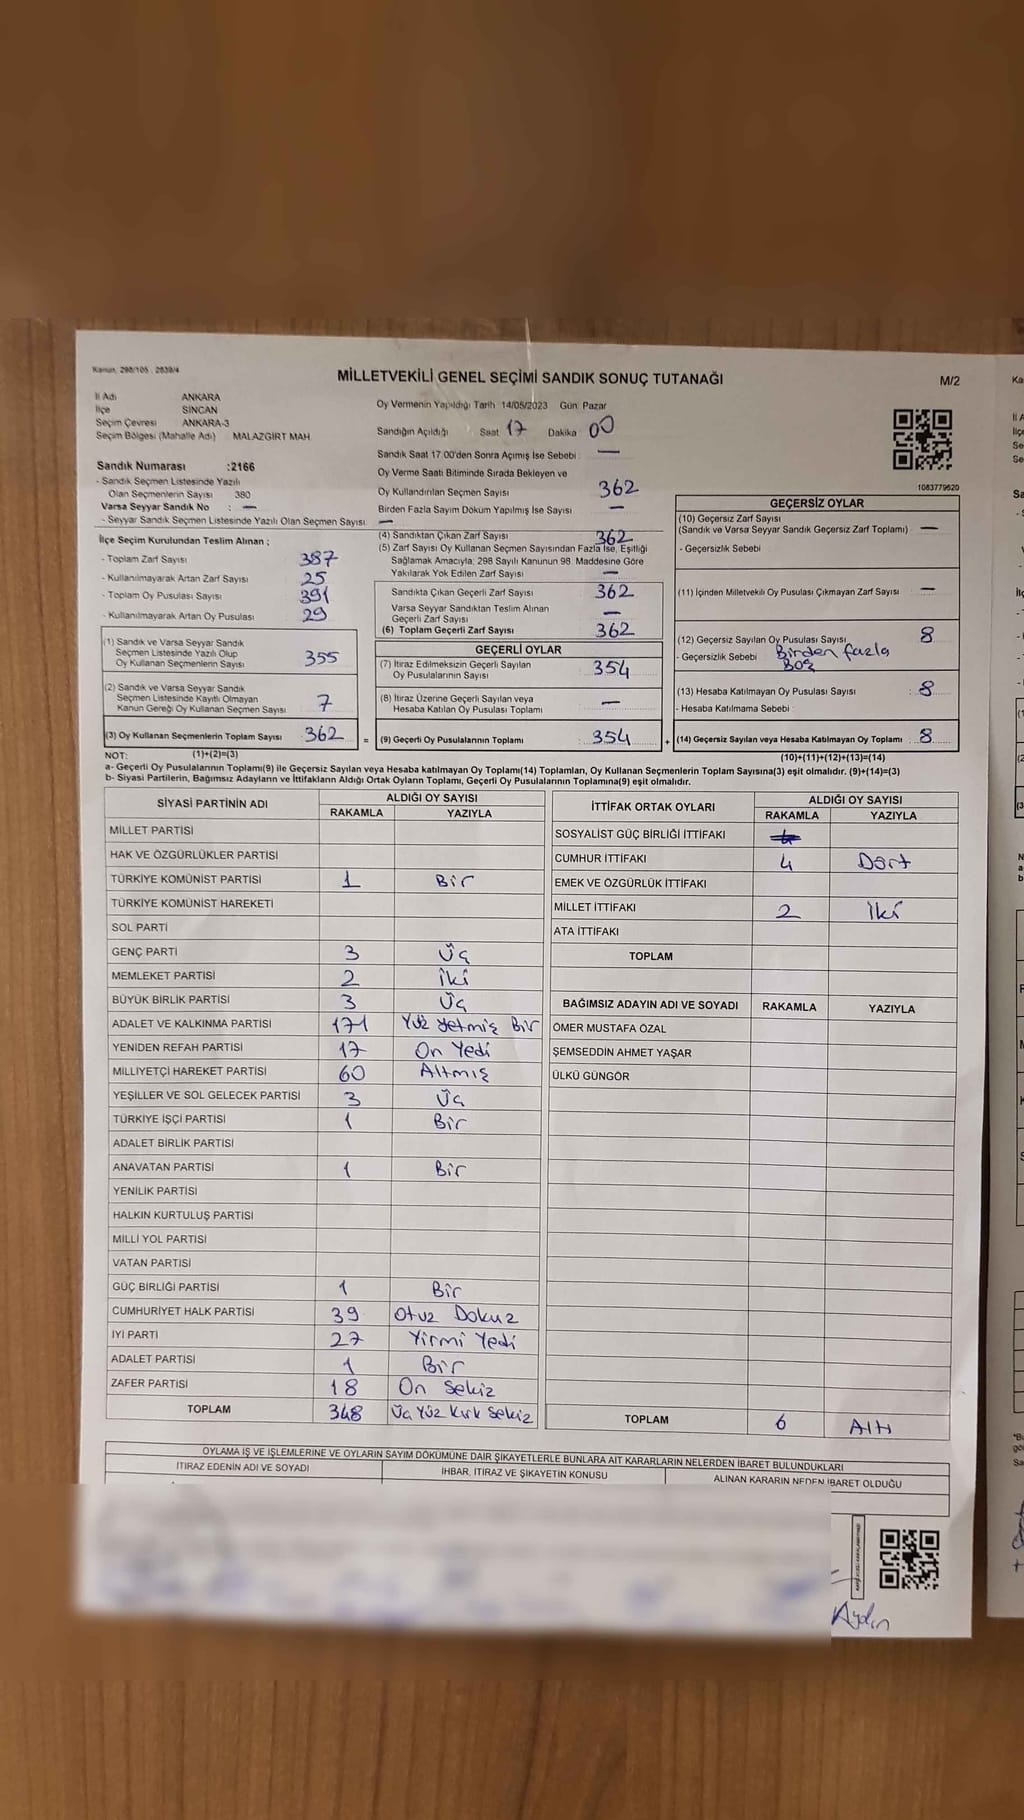 Kanun, 298/105 , 2839/4
MİLLETVEKİLİ GENEL SEÇİMİ SANDIK SONUÇ TUTANAĞI
M/2
İl Adı ANKARA
İlçe SİNCAN
Seçim Çevresi ANKARA-3
Seçim Bölgesi (Mahalle Adı) MALAZGİRT MAH.
Sandık Numarası :2166
- Sandık Seçmen Listesinde Yazılı
Olan Seçmenlerin Sayısı 380
Varsa Seyyar Sandık No : —
- Seyyar Sandık Seçmen Listesinde Yazılı Olan Seçmen Sayısı: —
İlçe Seçim Kurulundan Teslim Alınan ;
- Toplam Zarf Sayısı 387
- Kullanılmayarak Artan Zarf Sayısı 25
- Toplam Oy Pusulası Sayısı 391
- Kullanılmayarak Artan Oy Pusulası 29
(1) Sandık ve Varsa Seyyar Sandık
Seçmen Listesinde Yazılı Olup
Oy Kullanan Seçmenlerin Sayısı 355
(2) Sandık ve Varsa Seyyar Sandık
Seçmen Listesinde Kayıtlı Olmayan
Kanun Gereği Oy Kullanan Seçmen Sayısı 7
(3) Oy Kullanan Seçmenlerin Toplam Sayısı 362
Oy Vermenin Yapıldığı Tarih 14/05/2023 Gün Pazar
Sandığın Açıldığı Saat 17 Dakika 00
Sandık Saat 17.00'den Sonra Açımış İse Sebebi : —
Oy Verme Saati Bitiminde Sırada Bekleyen ve
Oy Kullandırılan Seçmen Sayısı 362
Birden Fazla Sayım Döküm Yapılmış İse Sayısı —
(4) Sandıktan Çıkan Zarf Sayısı 362
(5) Zarf Sayısı Oy Kullanan Seçmen Sayısından Fazla İse, Eşitliği
Sağlamak Amacıyla; 298 Sayılı Kanunun 98. Maddesine Göre
Yakılarak Yok Edilen Zarf Sayısı —
Sandıkta Çıkan Geçerli Zarf Sayısı 362
Varsa Seyyar Sandıktan Teslim Alınan
Geçerli Zarf Sayısı —
(6) Toplam Geçerli Zarf Sayısı 362
GEÇERLİ OYLAR
(7) İtiraz Edilmeksizin Geçerli Sayılan
Oy Pusulalarının Sayısı 354
(8) İtiraz Üzerine Geçerli Sayılan veya
Hesaba Katılan Oy Pusulası Toplamı —
= (9) Geçerli Oy Pusulalarının Toplamı 354
1083779620
GEÇERSİZ OYLAR
(10) Geçersiz Zarf Sayısı
(Sandık ve Varsa Seyyar Sandık Geçersiz Zarf Toplamı) —
- Geçersizlik Sebebi
(11) İçinden Milletvekili Oy Pusulası Çıkmayan Zarf Sayısı —
(12) Geçersiz Sayılan Oy Pusulası Sayısı 8
- Geçersizlik Sebebi Birden fazla
Boş
(13) Hesaba Katılmayan Oy Pusulası Sayısı : 8
- Hesaba Katılmama Sebebi
+ (14) Geçersiz Sayılan veya Hesaba Katılmayan Oy Toplamı : 8
NOT: (1)+(2)=(3) (10)+(11)+(12)+(13)=(14)
a- Geçerli Oy Pusulalarının Toplamı(9) ile Geçersiz Sayılan veya Hesaba katılmayan Oy Toplamı(14) Toplamları, Oy Kullanan Seçmenlerin Toplam Sayısına(3) eşit olmalıdır. (9)+(14)=(3)
b- Siyasi Partilerin, Bağımsız Adayların ve İttifakların Aldığı Ortak Oyların Toplamı, Geçerli Oy Pusulalarının Toplamına(9) eşit olmalıdır.
SİYASİ PARTİNİN ADI ALDIĞI OY SAYISI
RAKAMLA YAZIYLA
MİLLET PARTİSİ
HAK VE ÖZGÜRLÜKLER PARTİSİ
TÜRKİYE KOMÜNİST PARTİSİ 1 Bir
TÜRKİYE KOMÜNİST HAREKETİ
SOL PARTİ
GENÇ PARTİ 3 Üç
MEMLEKET PARTİSİ 2 İki
BÜYÜK BİRLİK PARTİSİ 3 Üç
ADALET VE KALKINMA PARTİSİ 171 Yüz Yetmiş Bir
YENİDEN REFAH PARTİSİ 17 On Yedi
MİLLİYETÇİ HAREKET PARTİSİ 60 Altmış
YEŞİLLER VE SOL GELECEK PARTİSİ 3 Üç
TÜRKİYE İŞÇİ PARTİSİ 1 Bir
ADALET BİRLİK PARTİSİ
ANAVATAN PARTİSİ 1 Bir
YENİLİK PARTİSİ
HALKIN KURTULUŞ PARTİSİ
MİLLİ YOL PARTİSİ
VATAN PARTİSİ
GÜÇ BİRLİĞİ PARTİSİ 1 Bir
CUMHURİYET HALK PARTİSİ 39 Otuz Dokuz
İYİ PARTİ 27 Yirmi Yedi
ADALET PARTİSİ 1 Bir
ZAFER PARTİSİ 18 On Sekiz
TOPLAM 348 Üç Yüz Kırk Sekiz
İTTİFAK ORTAK OYLARI ALDIĞI OY SAYISI
RAKAMLA YAZIYLA
SOSYALİST GÜÇ BİRLİĞİ İTTİFAKI
CUMHUR İTTİFAKI 4 Dört
EMEK VE ÖZGÜRLÜK İTTİFAKI
MİLLET İTTİFAKI 2 İki
ATA İTTİFAKI
TOPLAM
BAĞIMSIZ ADAYIN ADI VE SOYADI RAKAMLA YAZIYLA
ÖMER MUSTAFA ÖZAL
ŞEMSEDDİN AHMET YAŞAR
ÜLKÜ GÜNGÖR
TOPLAM 6 Altı
OYLAMA İŞ VE İŞLEMLERİNE VE OYLARIN SAYIM DÖKÜMÜNE DAİR ŞİKAYETLERLE BUNLARA AİT KARARLARIN NELERDEN İBARET BULUNDUKLARI
İTİRAZ EDENİN ADI VE SOYADI İHBAR, İTİRAZ VE ŞİKAYETİN KONUSU ALINAN KARARIN NEDEN İBARET OLDUĞU
Aydın